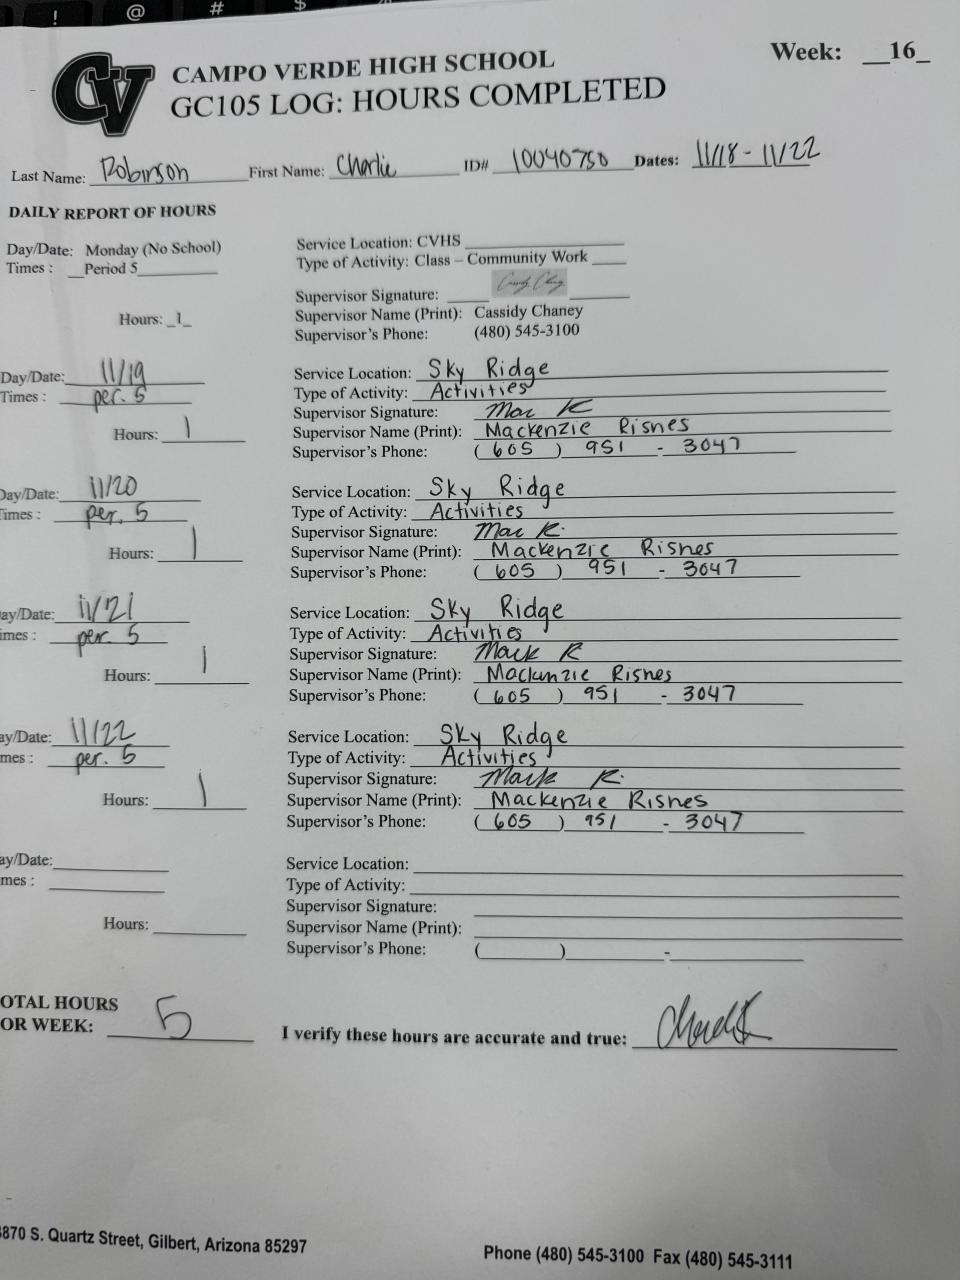 ! @ # $
CV
CAMPO VERDE HIGH SCHOOL
GC105 LOG: HOURS COMPLETED
Week: __16_
Last Name: Robinson First Name: Charlie ID# 10040750 Dates: 11/18 - 11/22
DAILY REPORT OF HOURS
Day/Date: Monday (No School)
Times : __Period 5
Hours: _1_
Service Location: CVHS
Type of Activity: Class – Community Work
Supervisor Signature:
Supervisor Name (Print): Cassidy Chaney
Supervisor's Phone: (480) 545-3100
Day/Date: 11/19
Times : per. 5
Hours: 1
Service Location: Sky Ridge
Type of Activity: Activities
Supervisor Signature: Mac K
Supervisor Name (Print): Mackenzie Risnes
Supervisor's Phone: (605) 951 - 3047
Day/Date: 11/20
Times : per. 5
Hours: 1
Service Location: Sky Ridge
Type of Activity: Activities
Supervisor Signature: Mac R.
Supervisor Name (Print): Mackenzie Risnes
Supervisor's Phone: (605) 951 - 3047
ay/Date: 11/21
imes : per. 5
Hours: 1
Service Location: Sky Ridge
Type of Activity: Activities
Supervisor Signature: Mack R
Supervisor Name (Print): Mackenzie Risnes
Supervisor's Phone: (605) 951 - 3047
ay/Date: 11/22
mes : per. 5
Hours: 1
Service Location: Sky Ridge
Type of Activity: Activities
Supervisor Signature: Mack R.
Supervisor Name (Print): Mackenzie Risnes
Supervisor's Phone: (605) 951 - 3047
ay/Date:
mes :
Hours:
Service Location:
Type of Activity:
Supervisor Signature:
Supervisor Name (Print):
Supervisor's Phone: ( ) -
OTAL HOURS
OR WEEK: 5
I verify these hours are accurate and true:
870 S. Quartz Street, Gilbert, Arizona 85297
Phone (480) 545-3100 Fax (480) 545-3111